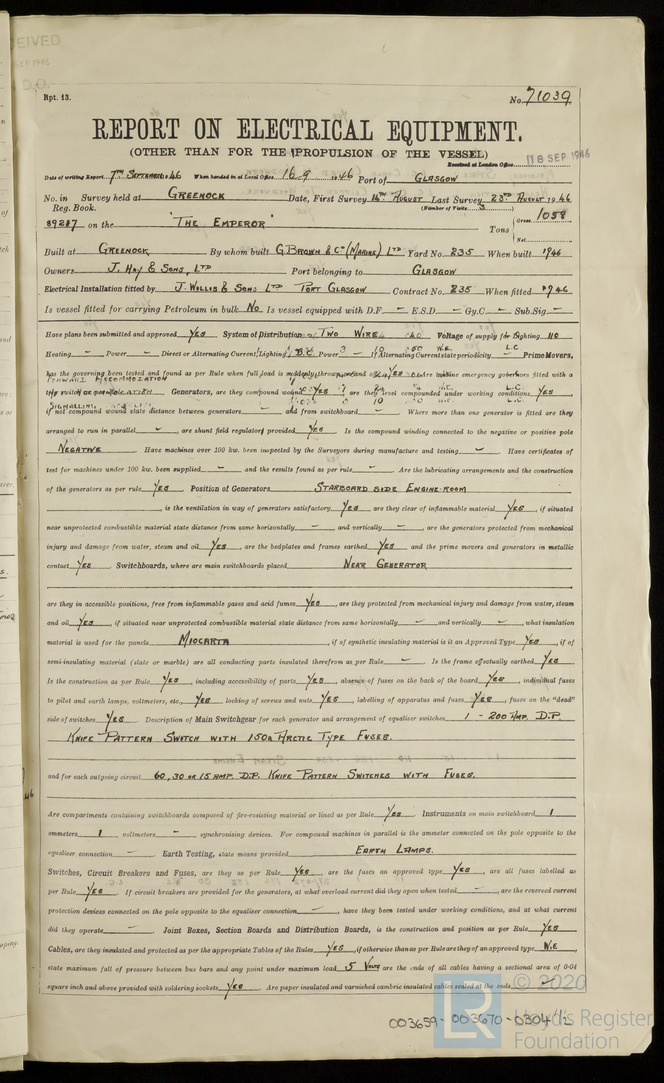 EIVED
D.O.
Rpt. 13.
No. 71039
REPORT ON ELECTRICAL EQUIPMENT.
(OTHER THAN FOR THE PROPULSION OF THE VESSEL)
Received at London Office 18 SEP 1946
Date of writing Report 7TH SEPTEMBER 1946 When handed in at Local Office 16.9.1946 Port of GLASGOW
No. in Survey held at GREENOCK Date, First Survey 14TH AUGUST Last Survey 23RD AUGUST 1946
Reg. Book. (Number of Visits 3)
89217 on the "THE EMPEROR" Tons Gross 1058
Net
Built at GREENOCK By whom built G. BROWN & CO (MARINE) LTD Yard No. 235 When built 1946
Owners J. HAY & SONS, LTD Port belonging to GLASGOW
Electrical Installation fitted by J. WOLLIS & SONS LTD PORT GLASGOW Contract No. 235 When fitted 1946
Is vessel fitted for carrying Petroleum in bulk NO Is vessel equipped with D.F. — E.S.D. — Gy.C. — Sub.Sig. —
Have plans been submitted and approved YES System of Distribution TWO WIRE Voltage of supply for Lighting 110
Heating — Power — Direct or Alternating Current, Lighting D.C. Power — If Alternating Current state periodicity — Prime Movers,
has the governing been tested and found as per Rule when full load is suddenly thrown on and off YES
Generators, are they compound wound YES, are they level compounded under working conditions YES,
if not compound wound state distance between generators — and from switchboard — Where more than one generator is fitted are they
arranged to run in parallel —, are shunt field regulators provided YES Is the compound winding connected to the negative or positive pole
NEGATIVE Have machines over 100 kw. been inspected by the Surveyors during manufacture and testing — Have certificates of
test for machines under 100 kw. been supplied — and the results found as per rule — Are the lubricating arrangements and the construction
of the generators as per rule YES Position of Generators STARBOARD SIDE ENGINE-ROOM
, is the ventilation in way of generators satisfactory YES are they clear of inflammable material YES, if situated
near unprotected combustible material state distance from same horizontally — and vertically —, are the generators protected from mechanical
injury and damage from water, steam and oil YES, are the bedplates and frames earthed YES and the prime movers and generators in metallic
contact YES Switchboards, where are main switchboards placed NEAR GENERATOR
are they in accessible positions, free from inflammable gases and acid fumes YES, are they protected from mechanical injury and damage from water, steam
and oil YES, if situated near unprotected combustible material state distance from same horizontally — and vertically —, what insulation
material is used for the panels MIOCARTA, if of synthetic insulating material is it an Approved Type YES, if of
semi-insulating material (slate or marble) are all conducting parts insulated therefrom as per Rule — Is the frame effectually earthed YES
Is the construction as per Rule YES, including accessibility of parts YES, absence of fuses on the back of the board YES, individual fuses
to pilot and earth lamps, voltmeters, etc., YES locking of screws and nuts YES, labelling of apparatus and fuses YES, fuses on the "dead"
side of switches YES Description of Main Switchgear for each generator and arrangement of equaliser switches 1 - 200 AMP. D.P.
KNIFE PATTERN SWITCH WITH 150A ARCTIC TYPE FUSES.
and for each outgoing circuit 60, 30 OR 15 AMP. D.P. KNIFE PATTERN SWITCHES WITH FUSES.
Are compartments containing switchboards composed of fire-resisting material or lined as per Rule YES Instruments on main switchboard 1
ammeters 1 voltmeters — synchronising devices. For compound machines in parallel is the ammeter connected on the pole opposite to the
equaliser connection — Earth Testing, state means provided EARTH LAMPS.
Switches, Circuit Breakers and Fuses, are they as per Rule YES are the fuses an approved type YES, are all fuses labelled as
per Rule YES If circuit breakers are provided for the generators, at what overload current did they open when tested —, are the reversed current
protection devices connected on the pole opposite to the equaliser connection —, have they been tested under working conditions, and at what current
did they operate — Joint Boxes, Section Boards and Distribution Boards, is the construction and position as per Rule YES
Cables, are they insulated and protected as per the appropriate Tables of the Rules YES, if otherwise than as per Rule are they of an approved type W.E
state maximum fall of pressure between bus bars and any point under maximum load 5 Volts are the ends of all cables having a sectional area of 0·04
square inch and above provided with soldering sockets YES Are paper insulated and varnished cambric insulated cables sealed at the ends —
© 2020
LR
Lloyd's Register
Foundation
003659-003670-0304 1/2